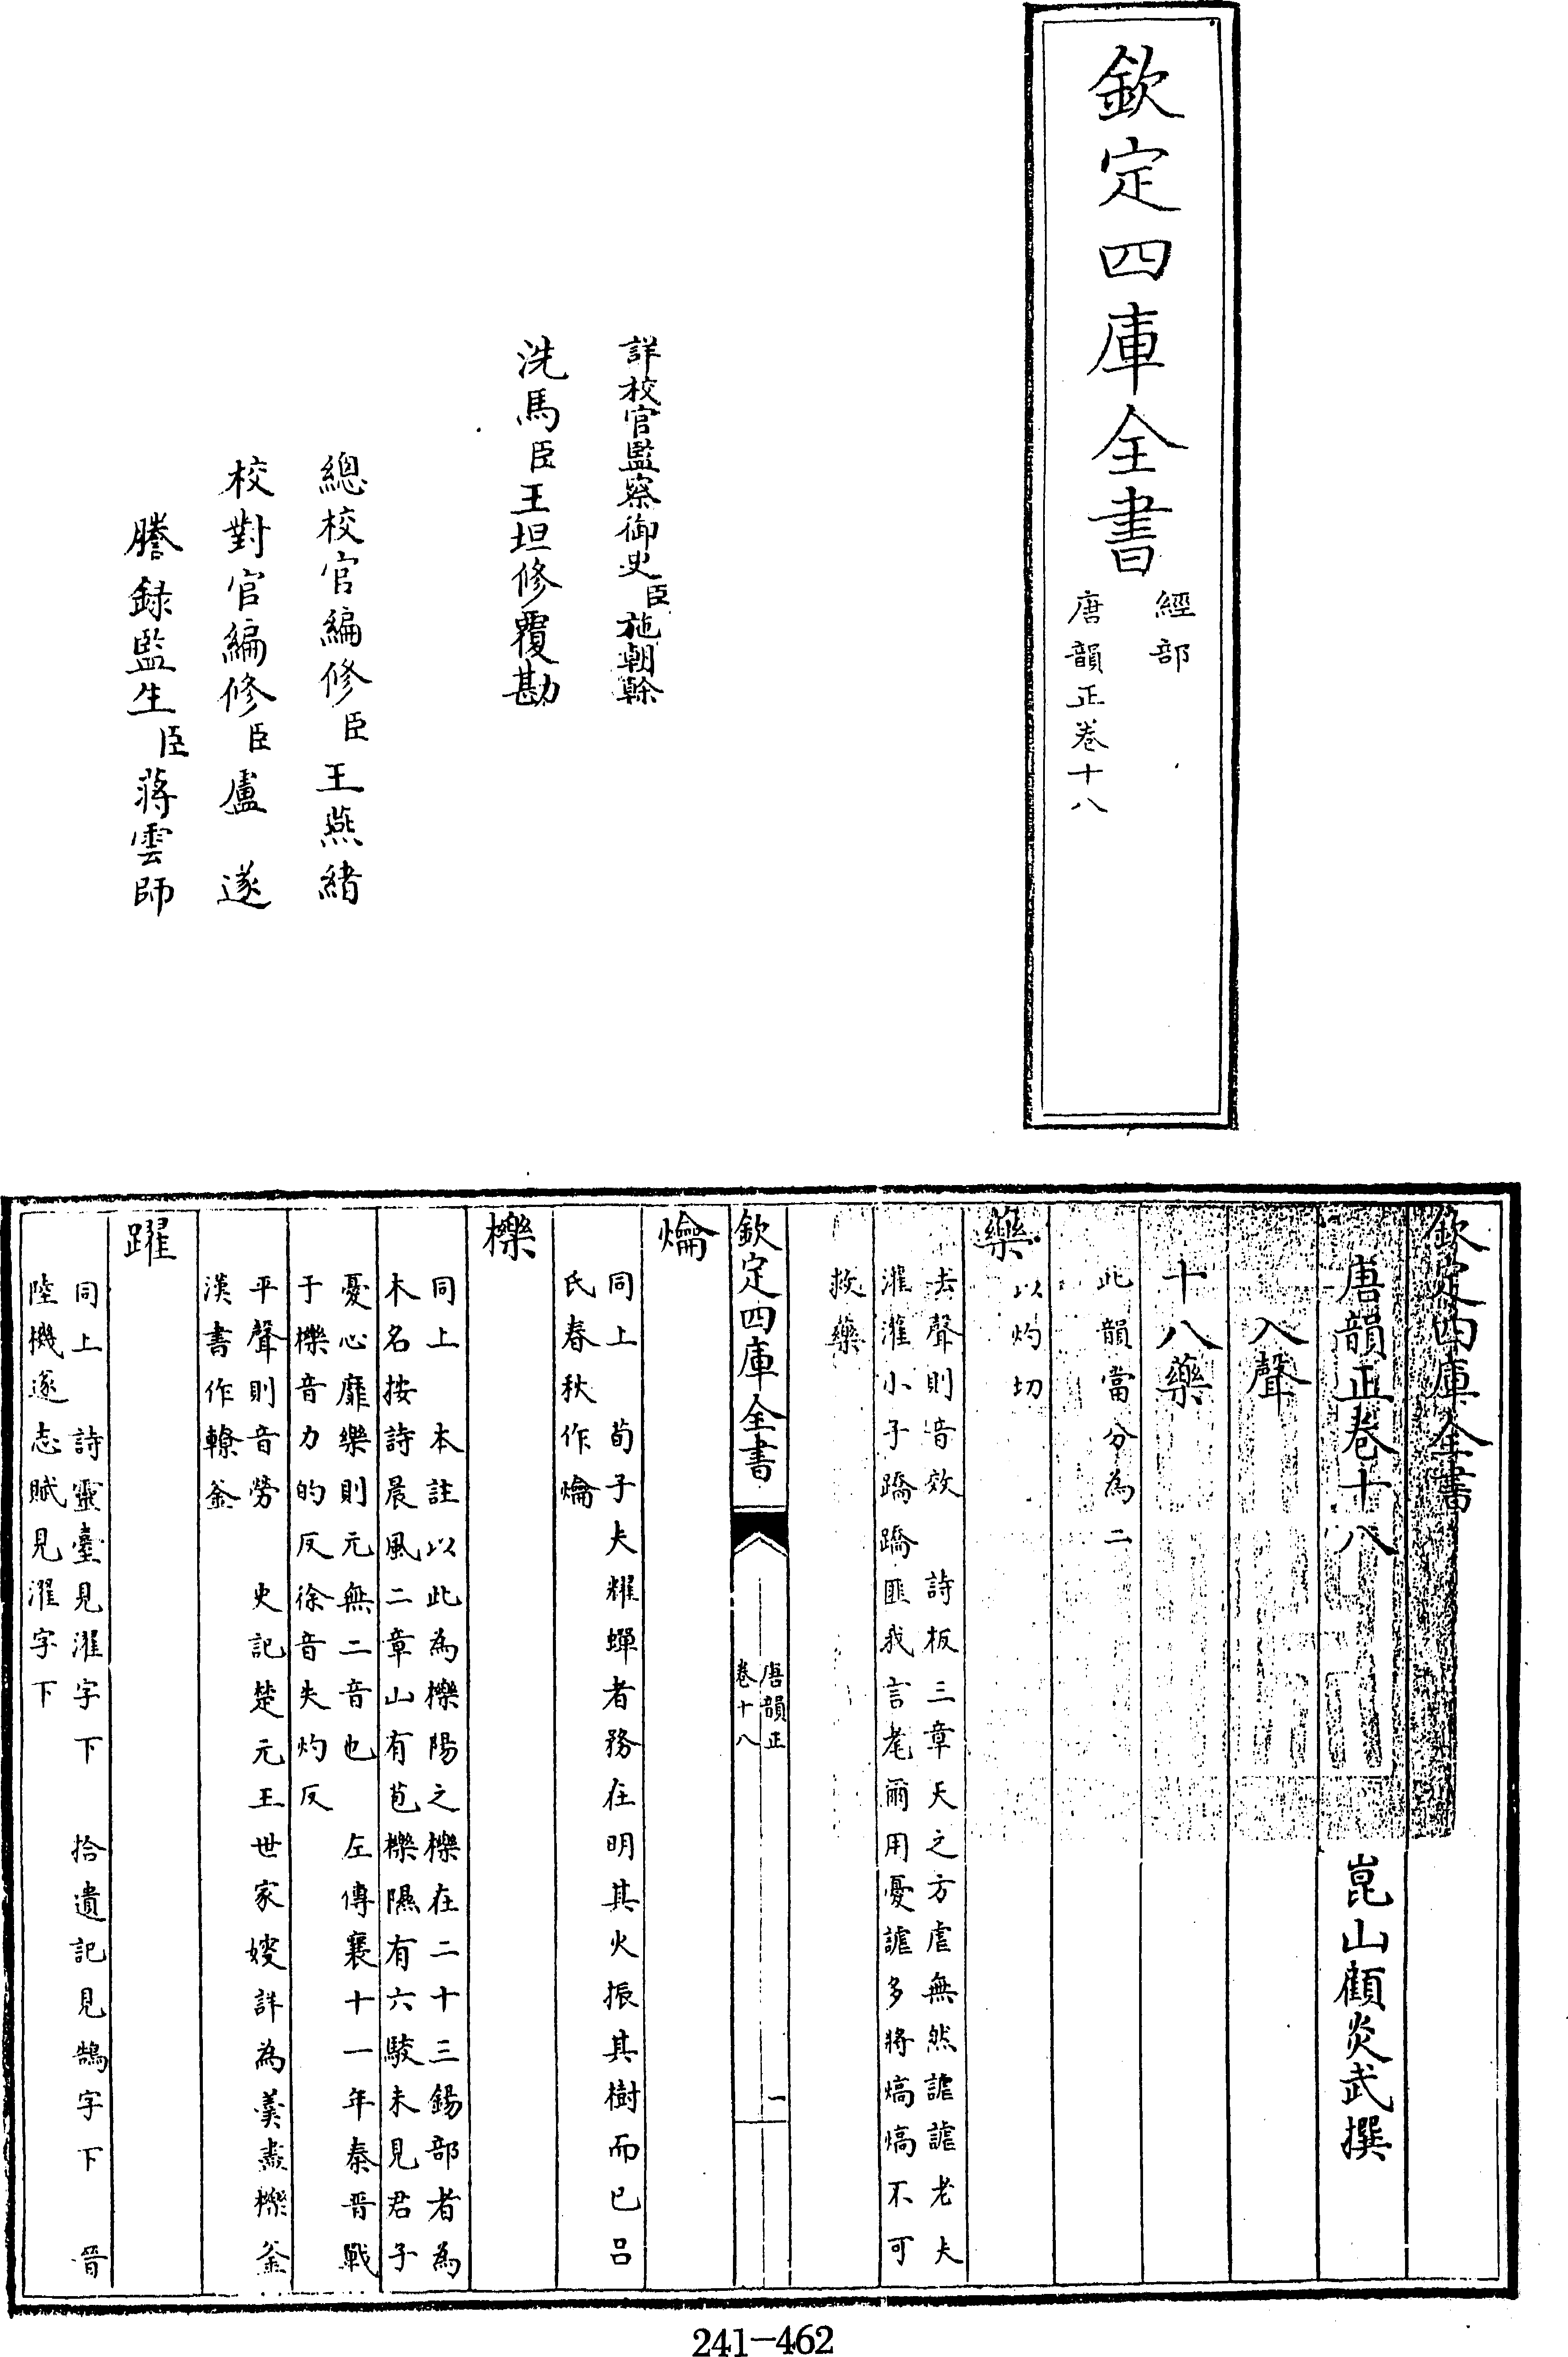 欽定四庫全書
經部
唐韻正卷十八
詳校官監察御史臣施朝榦
洗馬臣王坦修覆勘
總校官編修臣王燕緒
校對官編修臣盧遂
謄錄監生臣蔣雲師
欽定四庫全書
唐韻正卷十八
崑山顧炎武撰
入聲
十八藥
此韻當分為二
藥
以灼切
去聲則音效 詩板三章天之方虐無然謔謔老夫
灌灌小子蹻蹻匪我言耄爾用憂謔多將熇熇不可
救藥
欽定四庫全書
唐韻正
卷十八
一
爚
同上 荀子夫耀蟬者務在明其火振其樹而已呂
氏春秋作爚
櫟
同上 本註以此為櫟陽之櫟在二十三錫部者為
木名按詩晨風二章山有苞櫟隰有六駮未見君子
憂心靡樂則元無二音也 左傳襄十一年秦晉戰
于櫟音力的反徐音失灼反
平聲則音勞 史記楚元王世家嫂詳為羹盡櫟釜
漢書作轑釜
躍
同上 詩靈臺見濯字下 拾遺記見鵠字下 晉
陸機遂志賦見濯字下
241-462